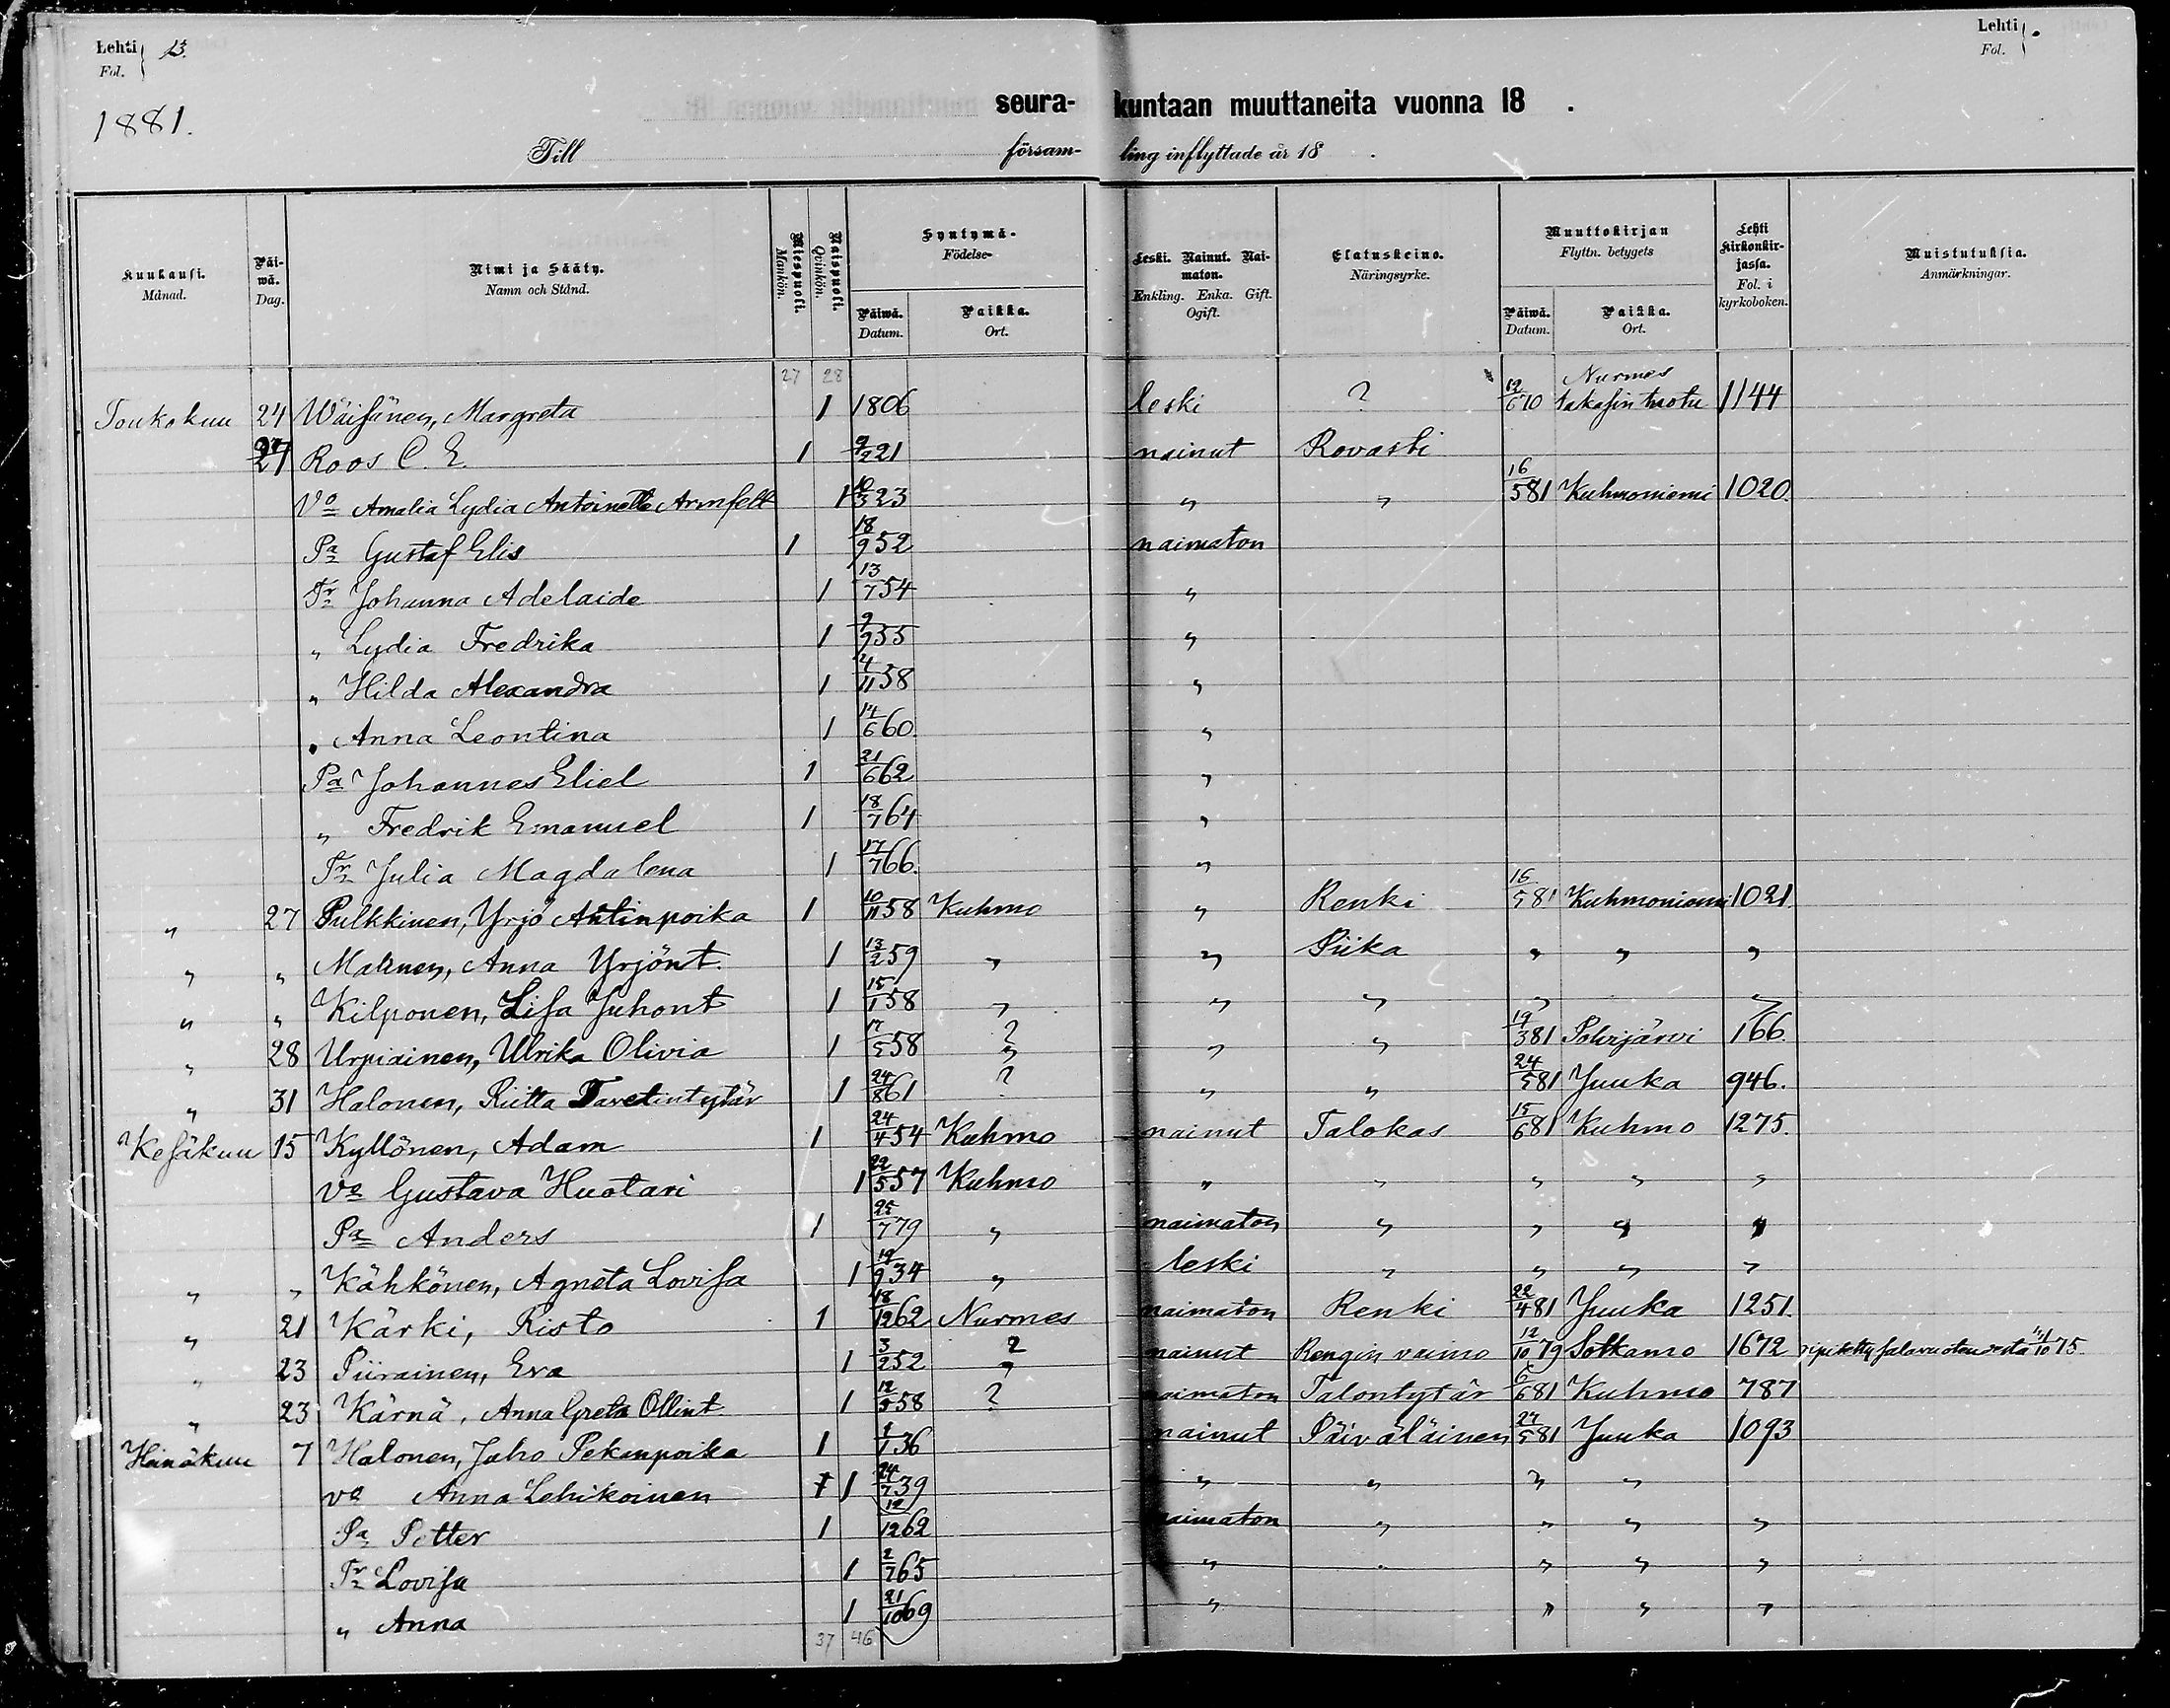 Lehti Fol. 13.
Lehti Fol.
1881.
seurakuntaan muuttaneita vuonna 18 .
Till församling inflyttade år 18 .
Kuukausi. Månad. Päiwä. Dag. Nimi ja Sääty. Namn och Stånd. Miespuoli. Mankön. Naispuoli. Qvinkön. Syntymä- Födelse- Päiwä. Datum. Paikka. Ort. Leski. Nainut. Naimaton. Enkling. Enka. Gift. Ogift. Elatuskeino. Näringsyrke. Muuttokirjan Flyttn. betygets Päiwä. Datum. Paikka. Ort. Lehti Kirkonkirjassa. Fol. i kyrkoboken. Muistutuksia. Anmärkningar.
27 28
Toukokuu 24 Wäisänen, Margreta 1 1806 leski ? 12/6 70 Nurmes takasin tuotu 1144
27 Roos C. E. 1 21 nainut Rovasti
Vo Amalia Lydia Antoinette Armfelt 1 10/3 23 " " 16/5 81 Kuhmoniemi 1020.
Pa Gustaf Elis 1 18/9 52 naimaton
Tr Johanna Adelaide 1 13/7 54 "
" Lydia Fredrika 1 9/9 55 "
" Hilda Alexandra 1 4/11 58 "
" Anna Leontina 1 14/6 60. "
Pa Johannes Eliel 1 21/6 62 "
" Fredrik Emanuel 1 18/7 64 "
Tr Julia Magdalena 1 17/7 66. "
" 27 Pulkkinen, Yrjö Antinpoika 1 10/11 58 Kuhmo " Renki 16/5 81 Kuhmoniemi 1021.
" " Malinen, Anna Yrjönt. 1 13/2 59 " " Piika " " "
" " Kilponen, Lisa Juhont 1 15/1 58 " " " " "
" 28 Urpiainen, Ulrika Olivia 1 17/5 58 ? " " 19/3 81 Polvijärvi 166.
" 31 Halonen, Riitta Tavetintytär 1 24/8 61 ? " " 24/5 81 Juuka 946.
Kesäkuu 15 Kyllönen, Adam 1 24/4 54 Kuhmo nainut Talokas 15/6 81 Kuhmo 1275.
Va Gustava Huotari 1 22/5 57 Kuhmo " " " " "
Pa Anders 1 25/7 79 " naimaton " " " "
" " Kähkönen, Agneta Lovisa 1 19/9 34 " leski " " " "
" 21 Kärki, Risto 1 18/12 62 Nurmes naimaton Renki 22/4 81 Juuka 1251.
" 23 Piirainen, Eva 1 3/2 52 ? nainut Rengin vaimo 12/10 79 Sotkamo 1672 75.
" 23 Kärnä, Anna Greta Ollint 1 12/5 58 ? naimaton Talontytär 6/6 81 Kuhmo 787
Heinäkuu 7 Halonen, Juho Pekanpoika 1 1/1 36 nainut Päiväläinen 27/5 81 Juuka 1093
va Anna Lehikoinen 1 24/7 39 " " " "
Pa Petter 1 12/12 62 naimaton " " " "
Tr Lovisa 1 2/7 65 " " " " "
" Anna 1 21/10 69 " " " "
37 46